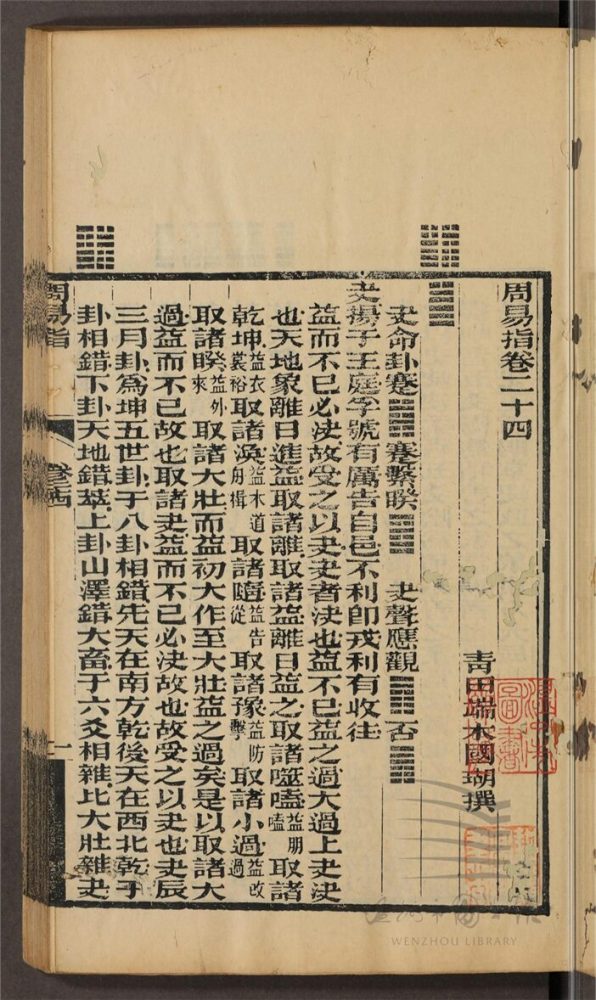 周易指卷二十四
青田端木國瑚撰
夬命卦蹇蹇繫睽夬聲應觀否
夬揚于王庭孚號有厲告自邑不利卽戎利有攸往
益而不已必決故受之以夬夬者決也益不已益之過大過上夬決
也天地象離日進益取諸離取諸益離日益之取諸噬嗑益朋嗑取諸
乾坤益衣裳裕取諸渙益木道舟楫取諸隨益告從取諸豫益防擊取諸小過益改過
取諸睽益外來取諸大壯而益初大作至大壯益之過矣是以取諸大
過益而不已故也取諸夬益而不已必決故也故受之以夬也夬辰
三月卦爲坤五世卦于八卦相錯先天在南方乾後天在西北乾于
卦相錯下卦天地錯萃上卦山澤錯大畜于六爻相雜比大壯雜夬
周易指
卷二十四
一
WENZHOU LIBRARY